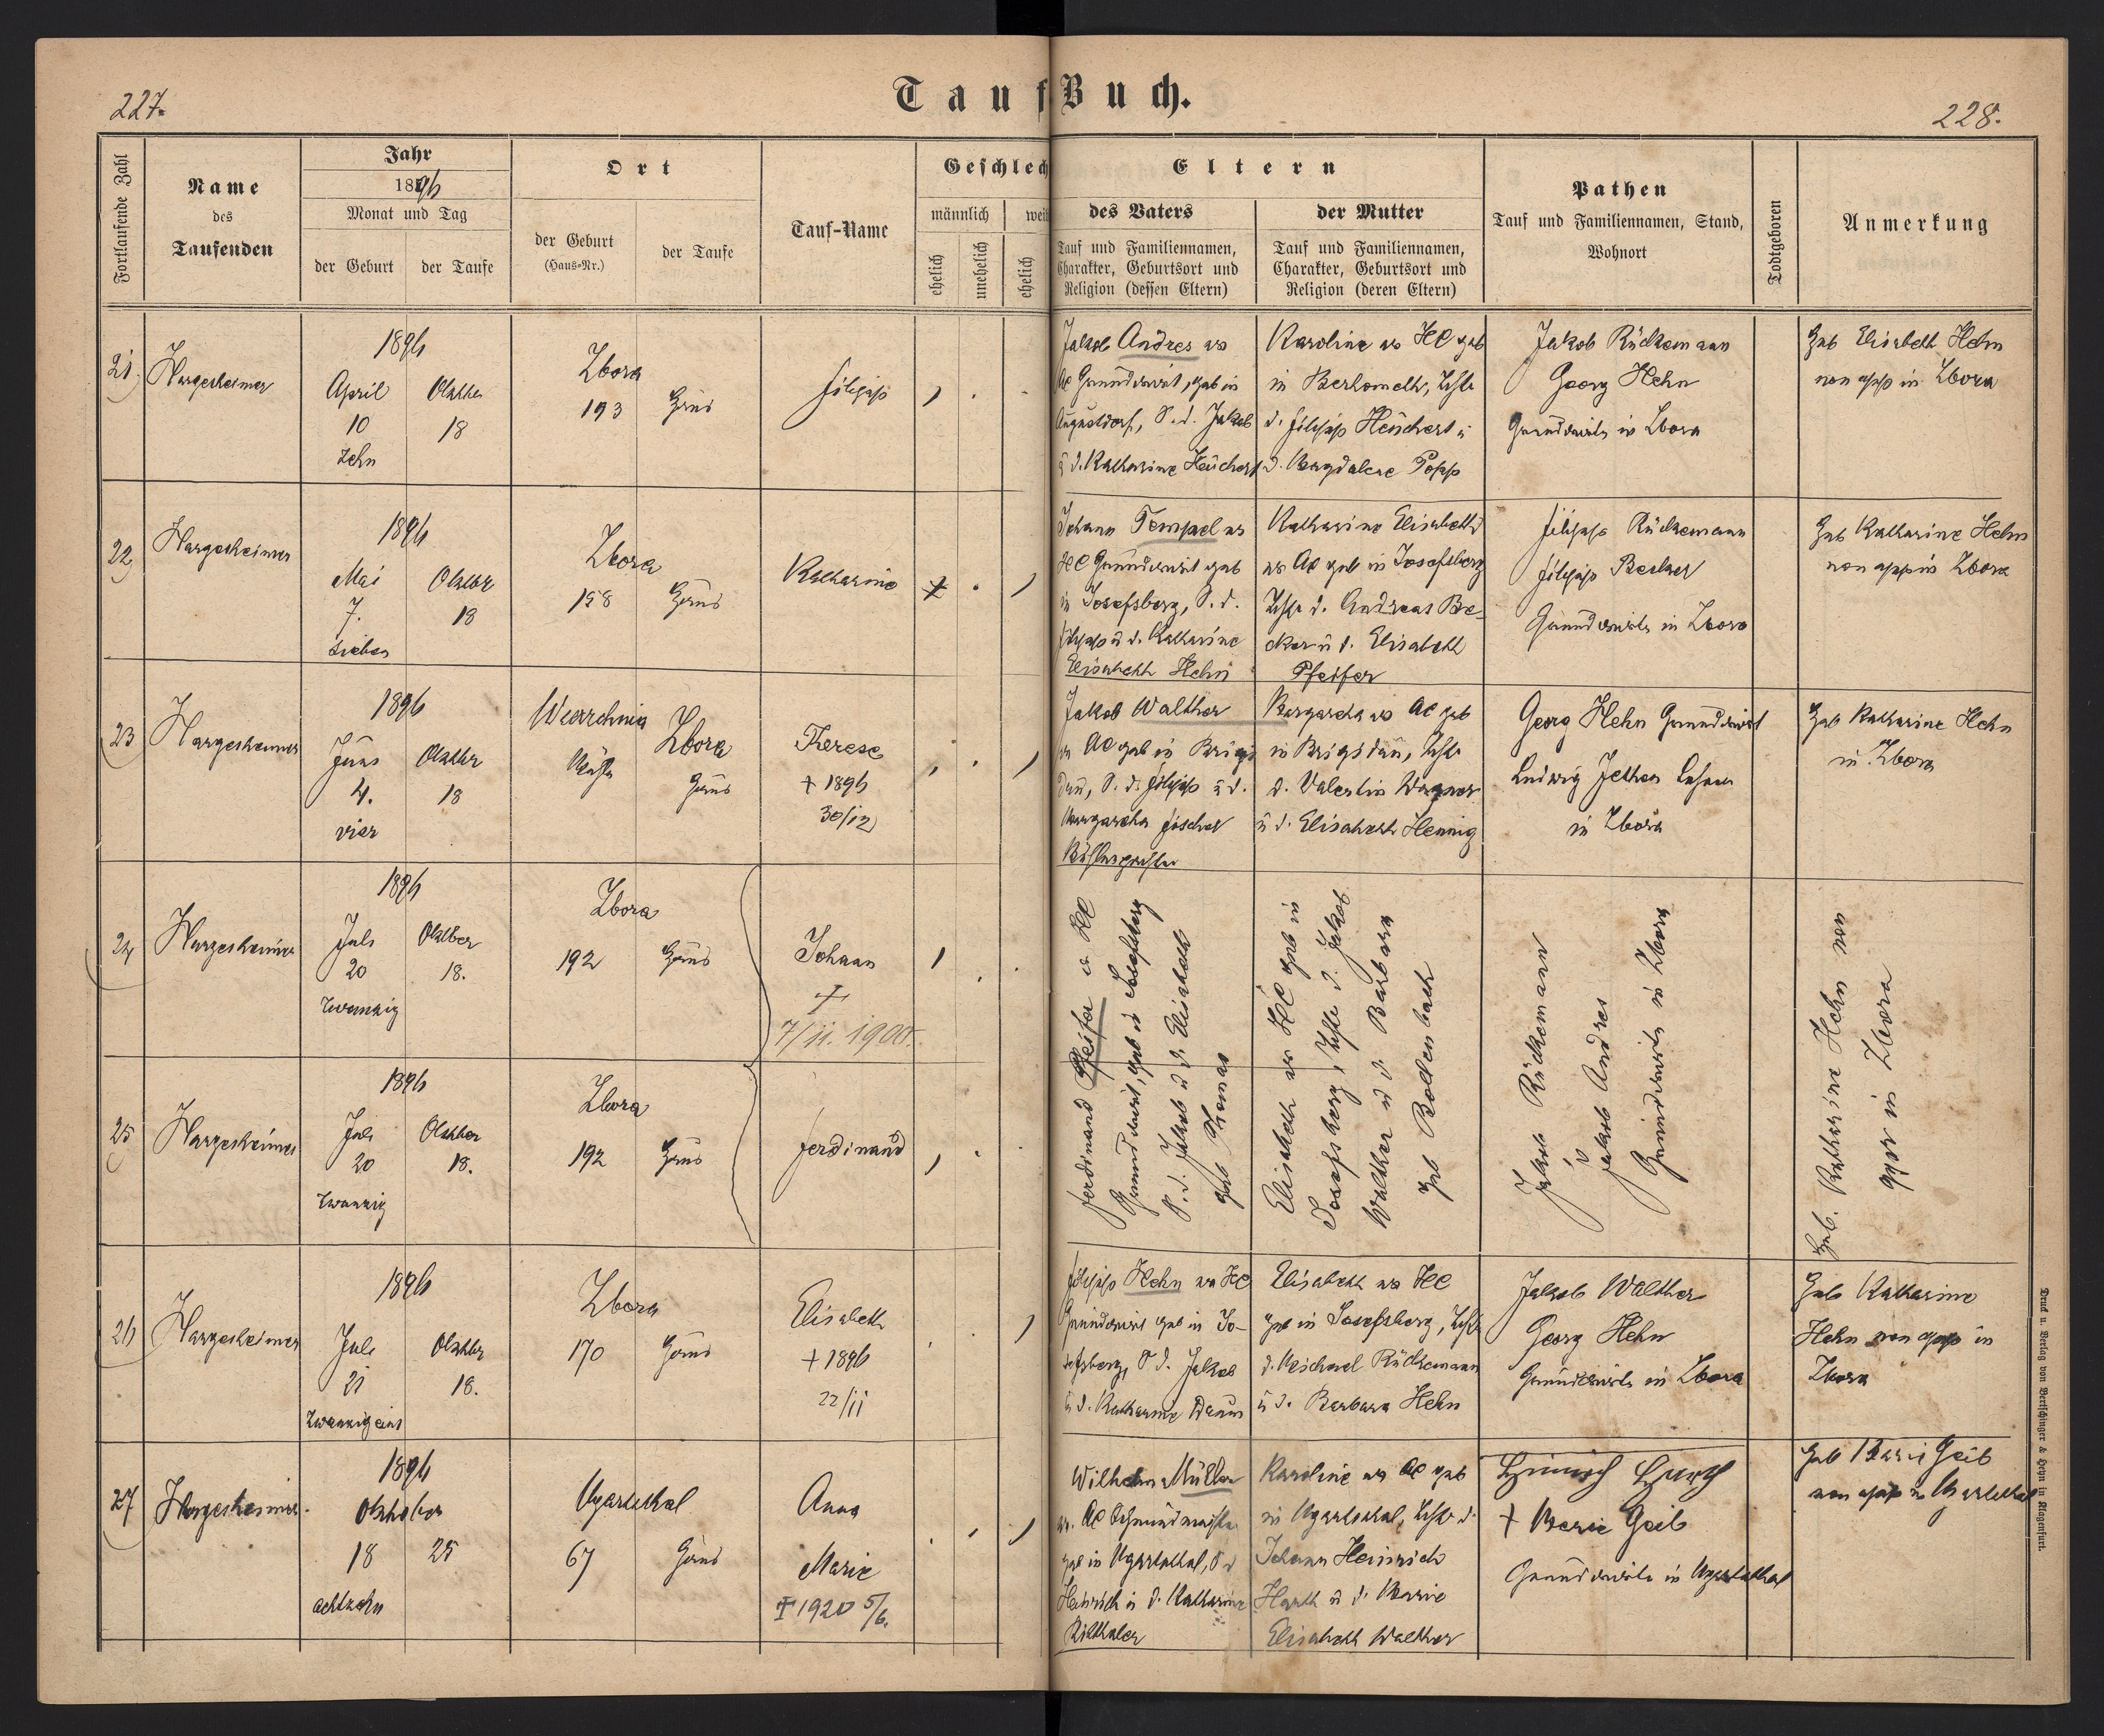 227.
Tauf-Buch.
228.
Fortlaufende Zahl
Name
des
Taufenden
Jahr
1896
Monat und Tag
der Geburt
der Taufe
Ort
der Geburt
(Haus-Nr.)
der Taufe
Tauf-Name
Geschlech
männlich
weib
ehelich
unehelich
ehelich
Eltern
des Vaters
Tauf und Familiennamen,
Charakter, Geburtsort und
Religion (dessen Eltern)
der Mutter
Tauf und Familiennamen,
Charakter, Geburtsort und
Religion (deren Eltern)
Pathen
Tauf und Familiennamen, Stand,
Wohnort
Todtgeboren
Anmerkung
21
Hargesheimer
1896
April
10
zehn
Oktber
18
Zbora
193
Haus
Filipp
Jakob Andres
Grundwirt, geb in
Augustdorf, S. d. Jakob
u d. Katharine Heuchert
Karoline HC geb
in Berhometh, Tchtr
d. Filipp Heuchert u
d. Magdalene Popp
Jakob Rückemann
Georg Hehn
Grundwirte in Zbora
Heb Elisabeth Hehn
non app in Zbora
22
Hargesheimer
1896
Mai
7.
sieben
Oktber
18
Zbora
158
Haus
Katharine
Johann Tempel
HC Grundwirt geb
in Josefsberg, S. d.
Filipp u d. Katharine
Elisabeth Hehn
Katharine Elisabeth
AC geb in Josefsberg
Tchtr d. Andreas Be-
cker u d. Elisabeth
Pfeifer
Filipp Rückemann
Filipp Becker
Grundwirte in Zbora
Heb Katharine Hehn
non app in Zbora
23
Hargesheimer
1896
Juni
4.
vier
Oktber
18
Wierzchnia
Zbora
Haus
Therese
+ 1896
30/12
Jakob Walther
AC geb in Brigi
dau, S. d. Filipp u d.
Margaretha Fischer
Margaretha AC geb
in Brigidau, Tchtr
d. Valentin Wagner
u d. Elisabeth Hennig
Georg Hehn Grundwirt
Ludwig Jethon Lehrer
in Zbora
Heb Katharine Hehn
in Zbora
24
Hargesheimer
1896
Juli
20
zwanzig
Oktber
18.
Zbora
192
Haus
Johann
+
7/11. 1900.
Ferdinand Pfeifer HC
Grundwirt, geb in Josefsberg
S. d. Jakob u d. Elisabeth
geb Thomas
Elisabeth HC geb in
Josefsberg, Tchtr d. Jakob
Walther u d. Barbara
geb Bollenbach
Jakob Rückemann
u
Jakob Andres
Grundwirte in Zbora
Heb. Katharine Hehn non
app in Zbora
25
Hargesheimer
1896
Juli
20
zwanzig
Oktber
18.
Zbora
192
Haus
Ferdinand
26
Hargesheimer
1896
Juli
21
zwanzigeins
Oktber
18.
Zbora
170
Haus
Elisabeth
+ 1896
22/11
Filipp Hehn HC
Grundwirt geb in Jo-
sefsberg, S d. Jakob
u d. Katharine Daum
Elisabeth HC
geb in Josefsberg, Tchtr
d. Michael Rückemann
u d. Barbara Hehn
Jakob Walther
Georg Hehn
Grundwirte in Zbora
Heb Katharine
Hehn non app in
Zbora
27
Hargesheimer
1896
Oktober
18
achtzehn
25
Ugartsthal
67
Haus
Anna
Marie
+ 1920 5/6.
Wilhelm Müller
AC
geb in Ugartsthal, S d
Heinrich u d. Katharine
Rilthaler
Karoline AC geb
in Ugartsthal, Tchtr d.
Johann Heinrich
Harth u d. Marie
Elisabeth Walther
Heinrich Harth
+ Marie Geib
Grundwirte in Ugartsthal
Heb Marie Geib
non app in Ugartsthal
Druck u. Verlag von Bertschinger & Heyn in Klagenfurt.